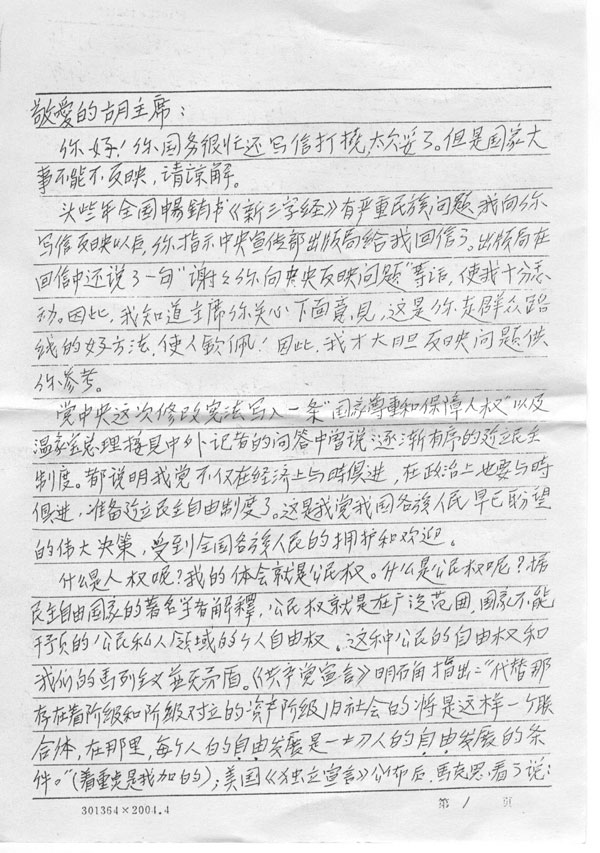 敬爱的胡主席：
你好！你国务很忙还写信打挠，太欠妥了。但是国家大
事不能不反映，请谅解。
头些年全国畅销书《新三字经》有严重民族问题，我向你
写信反映以后，你指示中央宣传部出版局给我回信了。出版局在
回信中还说了一句“谢谢你向中央反映问题”等话，使我十分感
动。因此，我知道主席你关心下面意见，这是你走群众路
线的好方法，使人钦佩！因此，我才大胆反映问题供
你参考。
党中央这次修改宪法写入一条“国家尊重和保障人权”以及
温家宝总理接见中外记者的问答中曾说：逐渐有序的建立民主
制度。都说明我党不仅在经济上与时俱进，在政治上也要与时
俱进，准备建立民主自由制度了。这是我党我国各族人民早已盼望
的伟大决策，受到全国各族人民的拥护和欢迎。
什么是人权呢？我的体会就是公民权。什么是公民权呢？据
民主自由国家的著名学者解释，公民权就是在广泛范围，国家不能
干预的公民私人领域的个人自由权。这种公民的自由权和
我们的马列主义并无矛盾。《共产党宣言》明确指出：“代替那
存在着阶级和阶级对立的资产阶级旧社会的将是这样一个联
合体，在那里，每个人的自由发展是一切人的自由发展的条
件。”（着重点是我加的）；美国《独立宣言》公布后，马克思看了说：
301364×2004.4
第 1 页